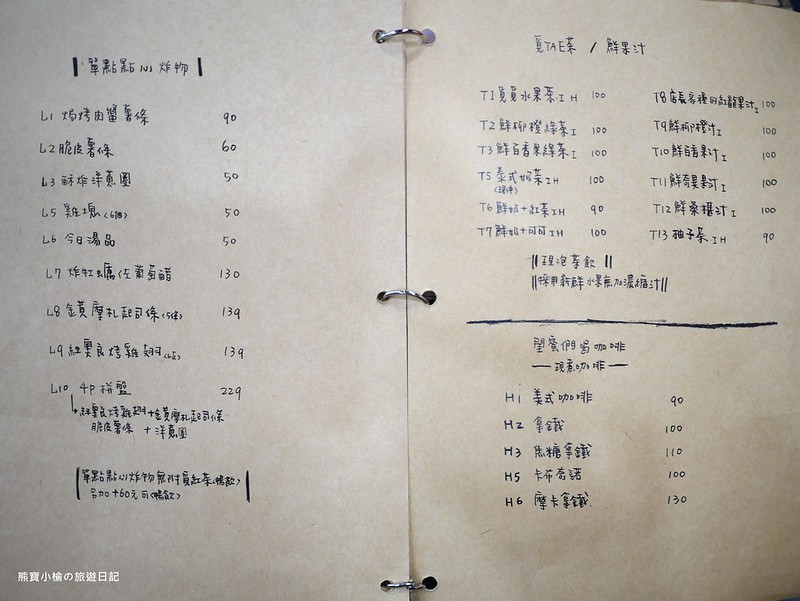 單點點心炸物
L1 焗烤肉醬薯條 90
L2 脆皮薯條 60
L3 酥炸洋蔥圈 50
L5 雞塊(6個) 50
L6 今日湯品 50
L7 炸牡蠣佐葡萄醋 130
L8 金黃摩札起司條(5條) 139
L9 紐奧良烤雞翅 139
L10 4P拼盤 229
紐奧良烤雞翅+金黃摩札起司條
脆皮薯條 + 洋蔥圈
單點點心炸物無附 紅茶(暢飲)
另加+60元可(暢飲)
覓TAE茶 / 鮮果汁
T1 覓覓水果茶 I H 100
T2 鮮柳橙綠茶 I 100
T3 鮮百香果綠茶 I 100
T5 泰式奶茶 I H 100
T6 鮮奶+紅茶 I H 90
T7 鮮奶+可可 I H 100
T8 店長家種的紅龍果汁 I 100
T9 鮮柳橙汁 I 100
T10 鮮百香果汁 I 100
T11 鮮奇異果汁 I 100
T12 鮮桑椹汁 I 100
T13 柚子茶 I H 90
現泡茶飲
採用新鮮水果無加濃縮汁
閨蜜們喝咖啡
現煮咖啡
H1 美式咖啡 90
H2 拿鐵 100
H3 焦糖拿鐵 110
H5 卡布奇諾 100
H6 摩卡拿鐵 130
熊寶小榆の旅遊日記